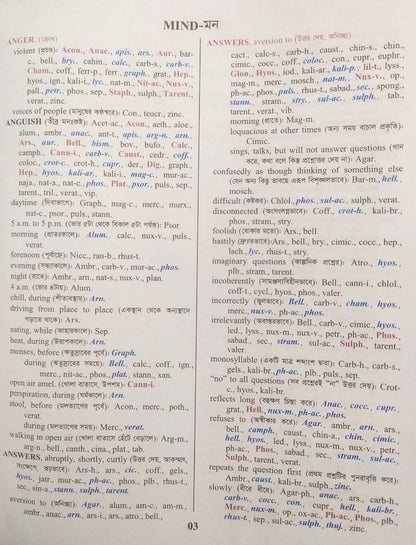 MIND-মন
ANGER, (ক্রোধ)
violent (প্রচণ্ড): Acon., Anac., apis., ars., Aur., bar-
c., bell., bry., cahin., calc., carb-s., carb-v.,
Cham., coff., ferr-p., ferr., graph., grat., Hep.,
hyos., ign., kali-i., lyc., nat-m., Nit-ac., Nux-v.,
pall., petr., phos., sep., Staph., sulph., Tarent.,
verat., zinc.
voices of people (মানুষের কণ্ঠস্বরে): Con., teucr., zinc.
ANGUISH (তীব্র মনঃকষ্ট): Acet-ac., Acon., aeth., aloe.,
alum., ambr., anac., ant-t., apis., arg-n., arn.,
Ars., aur., Bell., bism., bov., bufo., Calc.,
camph., Cann-i., carb-v., Caust., cedr., coff.,
coloc., crot-c., crot-h., cupr., der., Dig., graph.,
Hep., hyos., kali-ar., kali-i., mag-c., mur-ac.,
naja., nat-a., nat-c., phos., Plat., psor., puls., sep.,
tarent., tril., verat., vip.
daytime (দিবাভাগে): Graph., mag-c., merc., murx.,
nat-c., psor., puls., stann.
5 a.m. to 5 p.m. (ভোর ৫টা থেকে বিকাল ৫টা পর্যন্ত): Psor.
morning (প্রাতঃকালে): Alum., calc., nux-v., puls.,
verat.
forenoon (পূর্বাহ্নে): Nicc., ran-b., rhus-t.
evening (সন্ধ্যাকালে): Ambr., carb-v., mur-ac., phos.
night (রাতে): Ambr., arn., nat-s., nux-v., plan.
4 a.m. (ভোর ৪টায়): Alum.
chill, during (শীতাবস্থায়): Arn.
driving from place to place (একস্থান থেকে অন্যস্থানে
গড়াতে থাকে): Ars.
eating, while (আহারকালে): Sep.
heat, during (উত্তাপকালে): Arn.
menses, before (ঋতুস্রাবের পূর্বে): Graph.
during (ঋতুস্রাবের সময়): Bell., calc., coff., ign.,
merc., nit-ac., phos., plat., stann., xan.
open air amel. (খোলা বাতাসে, উপশম): Cann-i.
perspiration, during (ঘর্মকালে): Arn.
stool, before (মলত্যাগের পূর্বে): Acon., merc., poth.,
verat.
during (মলত্যাগের সময়): Merc., verat.
walking in open air (খোলা বাতাসে হেঁটে বেড়ালে): Arg-m.,
arg-n., bell., canth., cina., plat., tab.
ANSWERS, abruptly, shortly, curtly (উত্তর দেয়, আকস্মাৎ,
সংক্ষেপে, রূঢ়ভাবে): Ars-h., ars., cic., coff., gels.,
hyos., jatr., mur-ac., ph-ac., phos., plb., rhus-t.,
sec., sin-a., stann., sulph., tarent.
aversion to (অনিচ্ছা): Agar., alum., am-c., am-m.,
ambr., anac., arn., ars-i., ars., atro., bell.,
ANSWERS, aversion to (উত্তর দেয়, অনিচ্ছা)
cact., calc-s., carb-h., caust., chin-s., chin.,
cimic., cocc., coff., coloc., con., cupr., euphr.,
Glon., Hyos., iod., kali-ar., kali-p., lil-t., lyss.,
mag-m., merc., mosch., nat-m., Nux-v., op.,
ph-ac., phos., puls., rhus-t., sabad., sec., spong.,
stann., stram., stry., sul-ac., sulph., tab.,
tarent., verat., vib.
morning (প্রাতে): Mag-m.
loquacious at other times (অন্য সময় বাচাল প্রকৃতি):
Cimic.
sings, talks, but will not answer questions (গান
করে, কথা বলে কিন্তু প্রশ্নোত্তর দেয় না): Agar.
confusedly as though thinking of something else
(যেন অন্য কিছু ভাবছে এরূপ বিশৃঙ্খলভাবে): Bar-m., hell.,
mosch.
difficult (কষ্টকর): Chlol., phos., sul-ac., sulph., verat.
disconnected (অসংলগ্নভাবে): Coff., crot-h., kali-br.,
phos., stram., stry.
foolish (বোকার মতো): Ars., bell.
hastily (দ্রুততারসাথে): Ars., bell., bry., cimic., cocc., hep.,
lach., lyc., rhus-t., stry.
imaginary questions (কাল্পনিক প্রশ্নের): Atro., hyos.,
plb., stram., tarent.
incoherently (সামঞ্জস্যবিহীনভাবে): Bell., cann-i., chlol.,
coff-t., cycl., hyos., phos., valer.
incorrectly (ভুলভাবে): Bell., carb-v., cham., hyos.,
merc., nux-v., ph-ac., phos.
irrelevantly (অবান্তরভাবে): Bell., carb-v., cimic., hyos.,
led., lyss., nux-m., nux-v., petr., ph-ac., Phos.,
sabad., sec., stram., sul-ac., Sulph., tarent.,
valer.
monosyllable (একটি মাত্র শব্দাংশ দ্বারা): Carb-h., carb-s.,
gels., kali-br., ph-ac., plb., puls., sep.
"no" to all questions (সব প্রশ্নেরই "না" উত্তর দেয়): Crot-
c., hyos., kali-br.
reflects long (বহুক্ষণ চিন্তা করে): Anac., cocc., cupr.,
grat., Hell., nux-m., ph-ac., phos.
refuses to (অস্বীকার করে): Agar., ambr., arn., ars.,
bell., camph., caust., chin-a., chin., cimic.,
hell., hyos., led., lyss., nux-m., nux-v., petr.,
ph-ac., Phos., sabad., sec., stram., sul-ac.,
Sulph., tarent., verat.
repeats the question first (প্রথম প্রশ্নটির পুনরাবৃত্তি করে):
Ambr., caust., kali-br., sulph., zinc.
slowly (ধীরে ধীরে): Agar-ph., anac., ars., carb-h.,
carb-v., cocc., con., cupr., hell., kali-br.,
Merc., nux-m., op., ox-ac., Ph-ac., Phos., plb.,
rhus-t., sep., sul-ac., sulph., thuj., zinc.
03